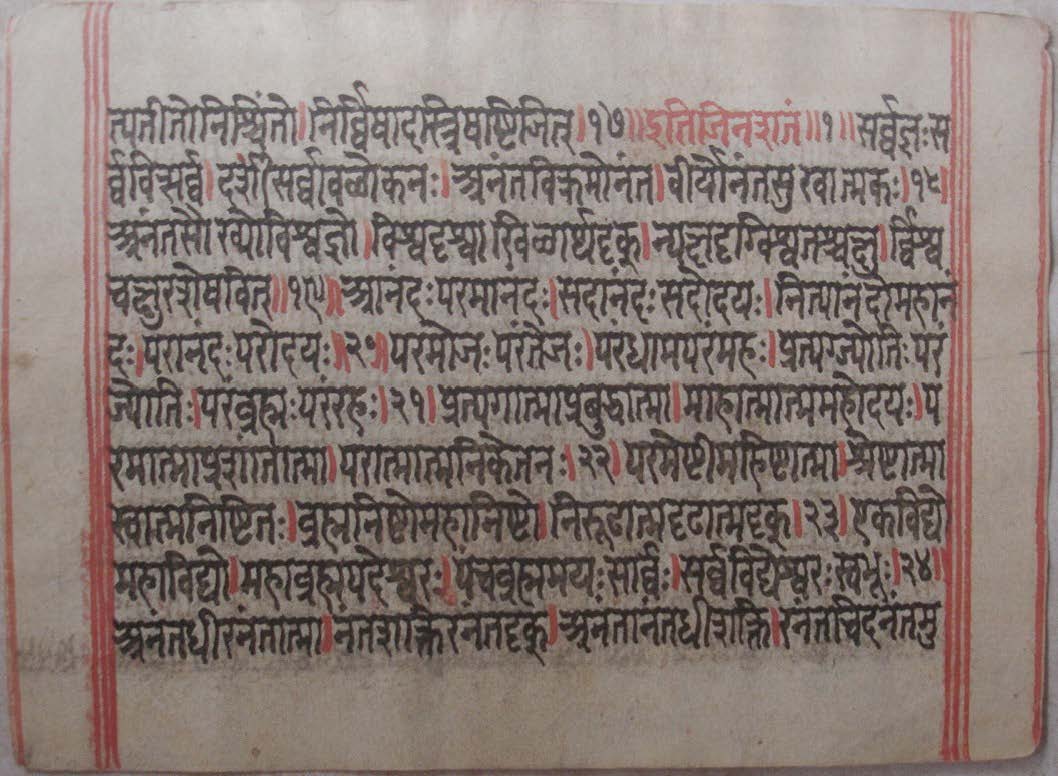 त्यतीतोनिश्चिंतो।निर्व्विषादस्त्रिषष्टिजित्।१७॥इतिजिनशतं॥१॥सर्व्वज्ञःस
र्व्ववित्सर्व्व।दर्शीसर्व्वावलोकनः।अनंतविक्रमोनंत।वीर्योनंतसुखात्मकः।१८।
अनंतसौख्योविश्वज्ञो।विश्वदृश्वाखिलार्थदृक्।न्यक्षदृग्विश्वतश्चक्षु।र्व्विश्व
चक्षुरशेषवित्॥१९॥आनंदःपरमानंदः।सदानंदःसदोदयः।नित्यानंदोमहानं
दः।परानंदःपरोदयः॥२०॥परमोजःपरंतेजः।परंधामपरंमहः।प्रत्यग्ज्योतिःपरं
ज्योतिः।परंब्रह्मःपरंरहः।२१।प्रत्यगात्माप्रबुद्धात्मा।माहात्मात्ममहोदयः।प
रमात्माप्रशांतात्मा।परात्मात्मनिकेतनः।२२।परमेष्टीमहिष्टात्मा।श्रेष्टात्मा
स्वात्मनिष्टितः।ब्रह्मनिष्टोमहानिष्टो।निरूढात्मदृढात्मदृक्।२३।एकविद्यो
महाविद्यो।महाब्रह्मपदेश्वरः।पंचब्रह्ममयःसार्व्वः।सर्व्वविद्येश्वरःस्वभूः।२४॥
अनंतधीरनंतात्मा।नंतशक्तिरनंतदृक्।अनंतानंतधीशक्ति।रनंतचिदनंतमु